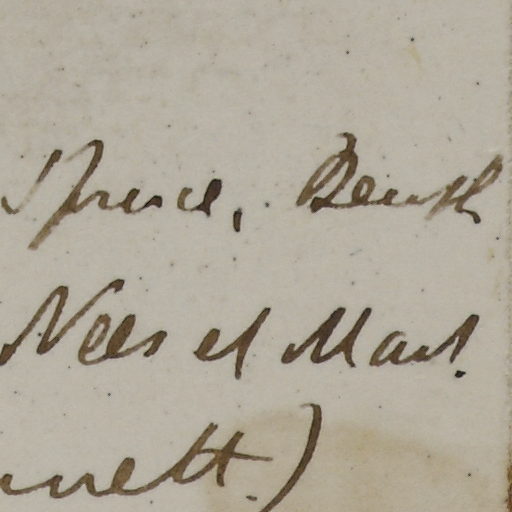 Spruce, Benth
Nees et Mart.
nnett.)